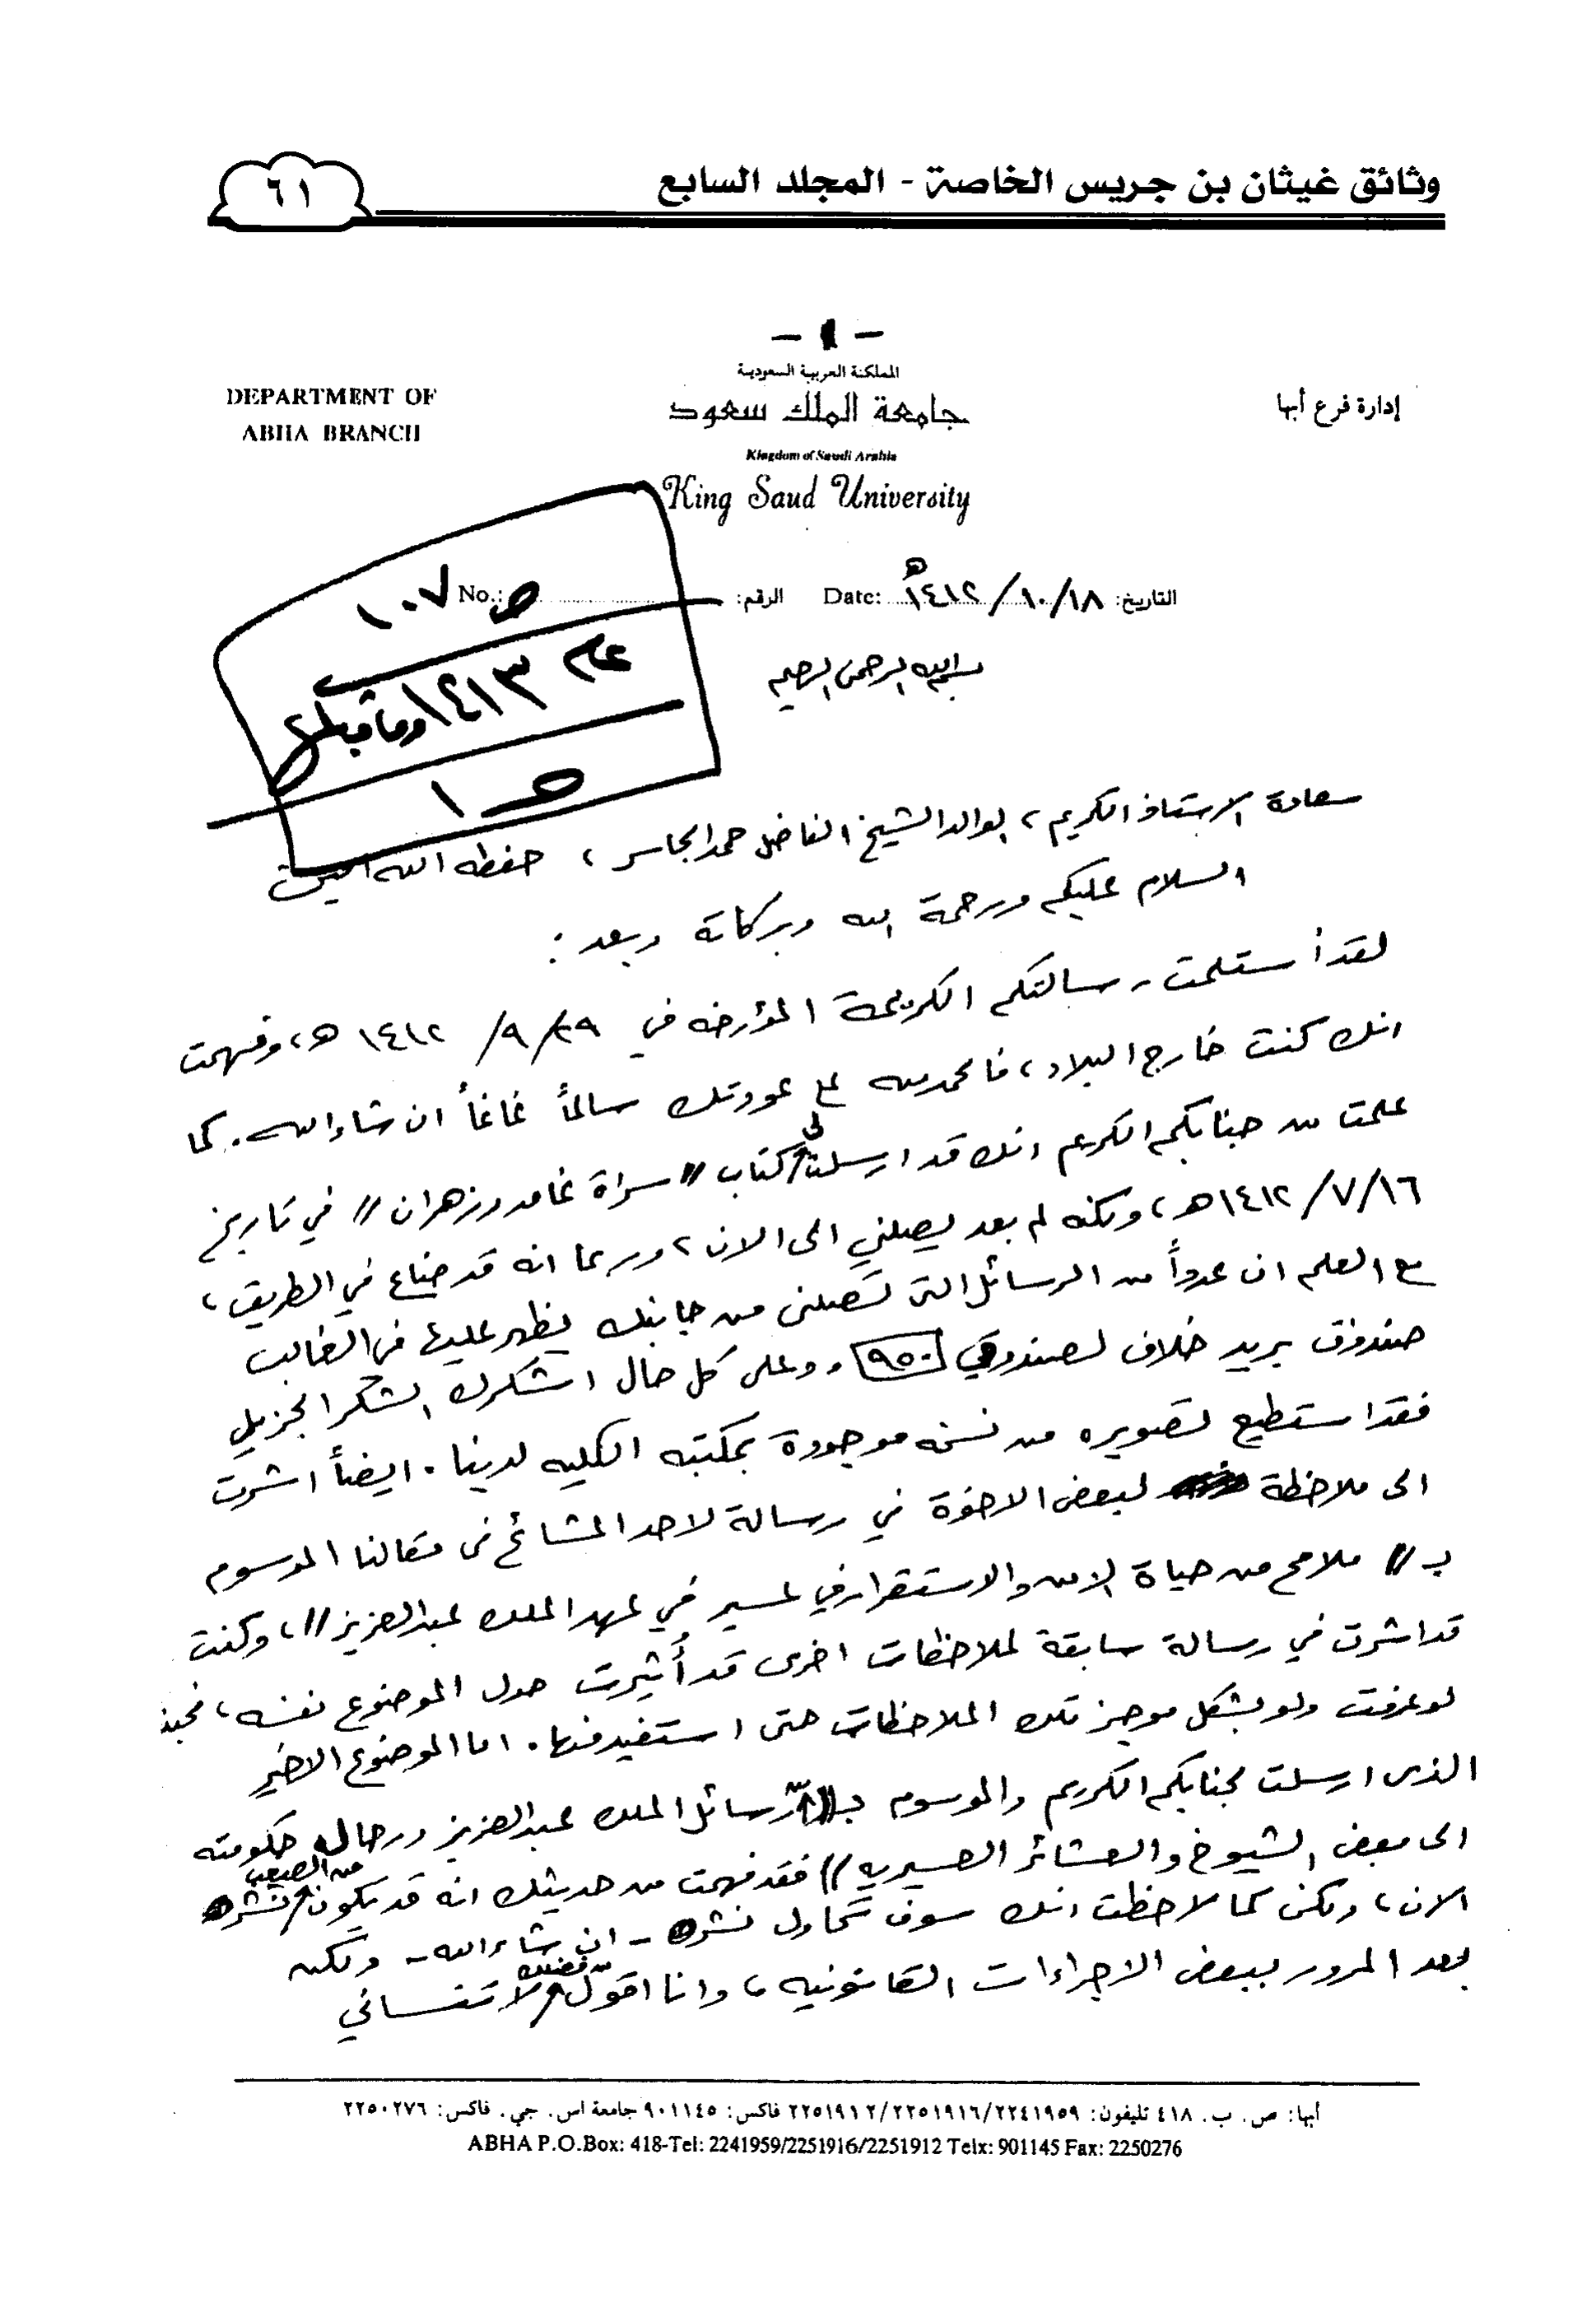 وثائق غيثان بن جريس الخاصة - المجلد السابع
٦١
- ١ -
المملكة العربية السعودية
جامعة الملك سعود
Kingdom of Saudi Arabia
King Saud University
إدارة فرع أبها
DEPARTMENT OF
ABHA BRANCH
التاريخ: ١٨/١٠/١٤١٢هـ Date: الرقم: No.:
ص ١٠٧
عام ١٤١٣ وما قبلها
ص ١
بسم الله الرحمن الرحيم
سعادة الاستاذ الكريم، الوالد الشيخ الفاضل حمد الجاسر، حفظه الله آمين
السلام عليكم ورحمة الله وبركاته وبعد:
لقد أستلمت رسالتكم الكريمة المؤرخه في ٢٩/٩/١٤١٢هـ، وفهمت
انك كنت خارج البلاد، فالحمد لله على عودتك سالماً غانماً ان شاء الله. كما
علمت من جنابكم الكريم انك قد ارسلت لي كتاب "سراة غامد وزهران" في تاريخ
١٦/٧/١٤١٢هـ، ولكنه لم بعد يصلني الى الان، وربما انه قد ضاع في الطريق،
مع العلم ان عدداً من الرسائل التى تصلنى من جانبك يظهر عليها في الغالب
صندوق بريد خلاف لصندوقي ٩٥٠. وعلى كل حال اشكرك الشكر الجزيل
فقد استطيع تصويره من نسخه موجودة بمكتبه الكليه لدينا. ايضاً اشرت
الى ملاحظة لبعض الاخوة في رسالة لاحد المشائخ في مقالنا الموسوم
بـ "ملامح من حياة الامن والاستقرار في عسير في عهد الملك عبدالعزيز"، وكنت
قد اشرت في رسالة سابقة لملاحظات اخرى قد أُثيرت حول الموضوع نفسه، فحبذ
لو عرفت ولو بشكل موجز تلك الملاحظات حتى استفيد منها. اما الموضوع الاخير
الذى ارسلت لجنابكم الكريم والموسوم بـ "رسائل الملك عبدالعزيز ورجال حكومته
الى بعض الشيوخ والعشائر العسيريه" فقد فهمت من حديثك انه قد يكون من الصعب نشره
الان، ولكن كما لاحظت انك سوف تحاول نشره - ان شاء الله - ولكن
بعد المرور ببعض الاجراءات القانونيه، وانا اقول من فضلك لا تنساني
أبها: ص. ب. ٤١٨ تليفون: ٢٢٤١٩٥٩/٢٢٥١٩١٦/٢٢٥١٩١٢ فاكس: ٩٠١١٤٥ جامعة اس. جي. فاكس: ٢٢٥٠٢٧٦
ABHA P.O.Box: 418-Tel: 2241959/2251916/2251912 Telx: 901145 Fax: 2250276